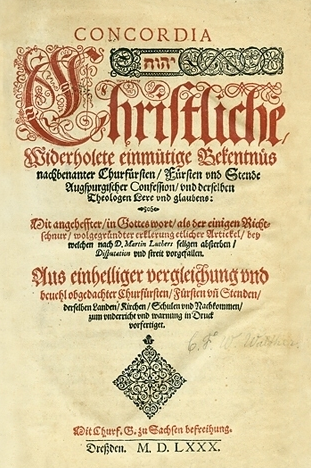 CONCORDIA
יהוה
Christliche,
Widerholete einmütige Bekentnüs
nachbenanter Churfürsten/ Fürsten vnd Stende
Augspurgischer Confession/ vnd derselben
Theologen Lere vnd glaubens:
Mit angeheffter/ in Gottes wort/ als der einigen Richt-
schnur/ wolgegründter erklerung etlicher Artickel/ bey
welchen nach D. Martin Luthers seligen absterben/
Disputation vnd streit vorgefallen.
Aus einhelliger vergleichung vnd
beuehl obgedachter Churfürsten/ Fürsten vñ Stenden/
derselben Landen/ Kirchen/ Schulen vnd Nachkommen/
zum vnderricht vnd warnung in Druck
vorfertiget.
Mit Churf. G. zu Sachsen befreihung.
Dreßden. M. D. LXXX.